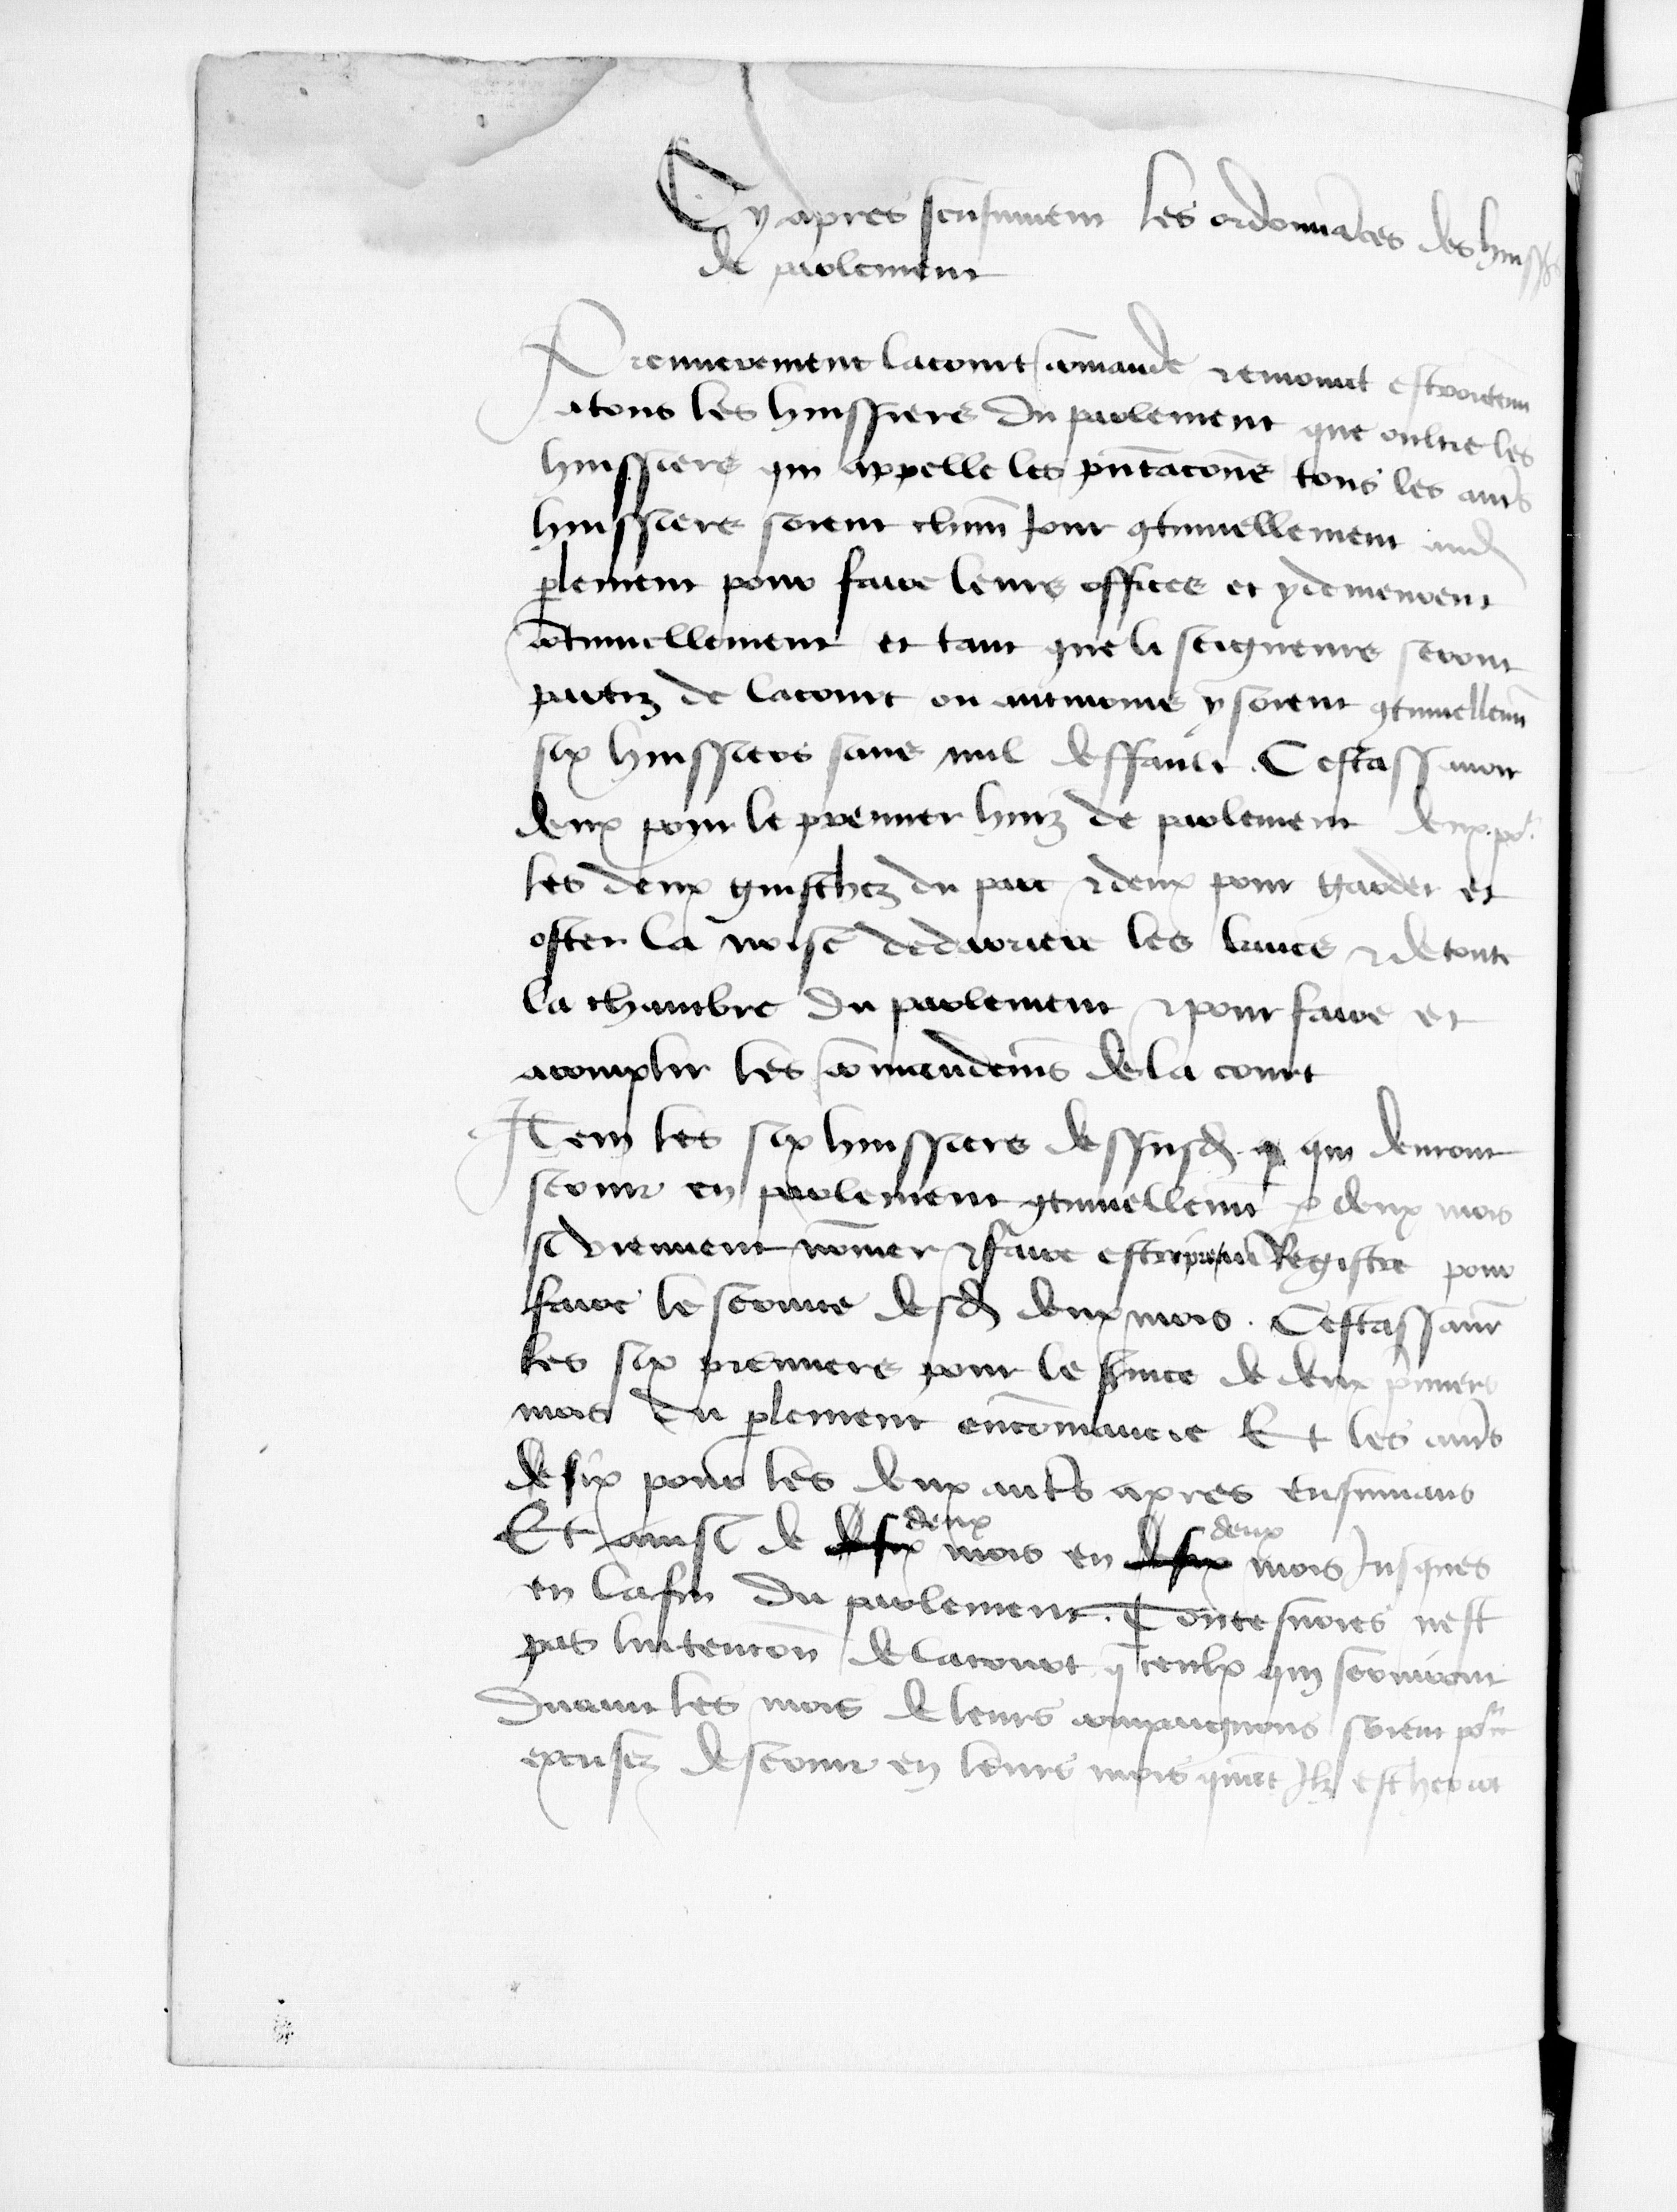 Cy apres sensuivent les ordonnances des huissiers
de parlement
Premierement la court commande et enjoint estroictem̃t
a tous les huissiers du parlement que oultre les
huissiers qui appelle les pñtacõns tous les aut̃s
huissiers soient chũn jour ꝯtinuellement aud
p̃lement pour faire leurs offices et y demeurent
cõtinuellement et tant que li seigneurs seront
partiz de la court ou au moins y soient ꝯtinuellem̃t
six huissiers sans nul deffault . Cestassavoir
deux pour le premier huiz de parlement deux po.r
les deux guischez du parc et deux pour garder et
oster la noise dederriere les bancs et de toute
la chambre du parlement et pour faire et
acomplir les cõmandemẽs de la court
Item les six huissiers dessusd. qui devront
servir en parlement ꝯtinuellem̃t p̃ deux mois
se viennent nõmer et faire escripre ou Registre pour
faire le service desd deux mois . Cestassavoir
les six premiers pour le s̃vice de deux p̃miers
mois du p̃lement encõmancie Et les aut̃s
de six pour les deux aut̃s apres ensuivans
Et ainsi de deux mois en deux mois jusques
en la fin du parlement . Toutesvoies nest
pas lintencõn de la court q̃ ceulx qui serviront
durant les mois de leurs compaignons soient po.r ce
excusez de servir en leurs mois quãt Ilz escherrõt